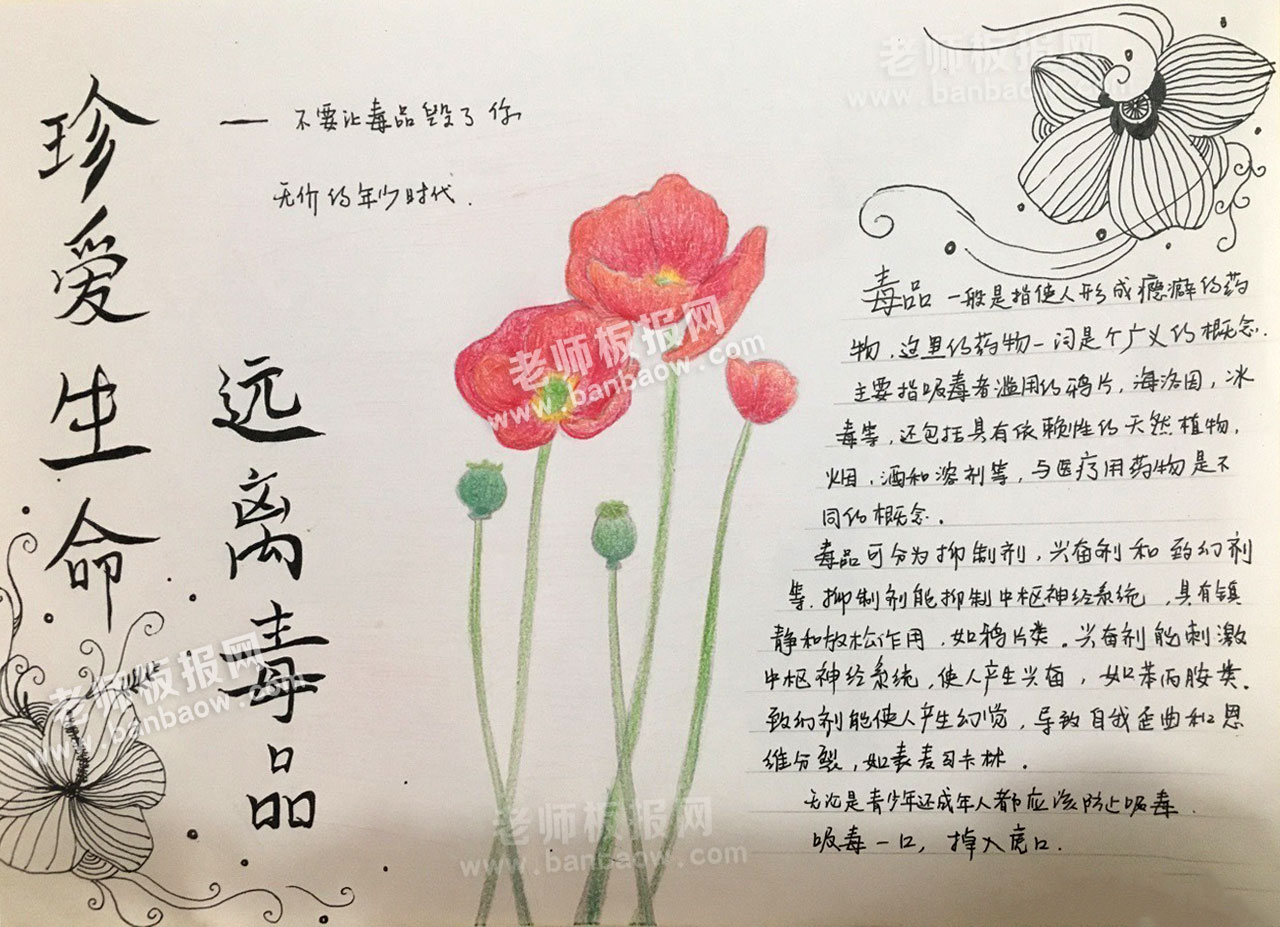 珍爱生命
远离毒品
— 不要让毒品毁了你
无价的年少时代.
毒品一般是指使人形成瘾癖的药
物,这里的药物一词是个广义的概念.
主要指吸毒者滥用的鸦片,海洛因,冰
毒等,还包括具有依赖性的天然植物,
烟,酒和溶剂等,与医疗用药物是不
同的概念.
毒品可分为抑制剂,兴奋剂和致幻剂
等.抑制剂能抑制中枢神经系统,具有镇
静和放松作用,如鸦片类。兴奋剂能刺激
中枢神经系统,使人产生兴奋,如苯丙胺类.
致幻剂能使人产生幻觉,导致自我歪曲和思
维分裂,如麦司卡林.
无论是青少年还成年人都应该防止吸毒.
吸毒一口,掉入虎口.
老师板报网
www.banbaow.com
老师板报网
www.banbaow.com
老师板报网
www.banbaow.com
老师板报网
www.banbaow.com